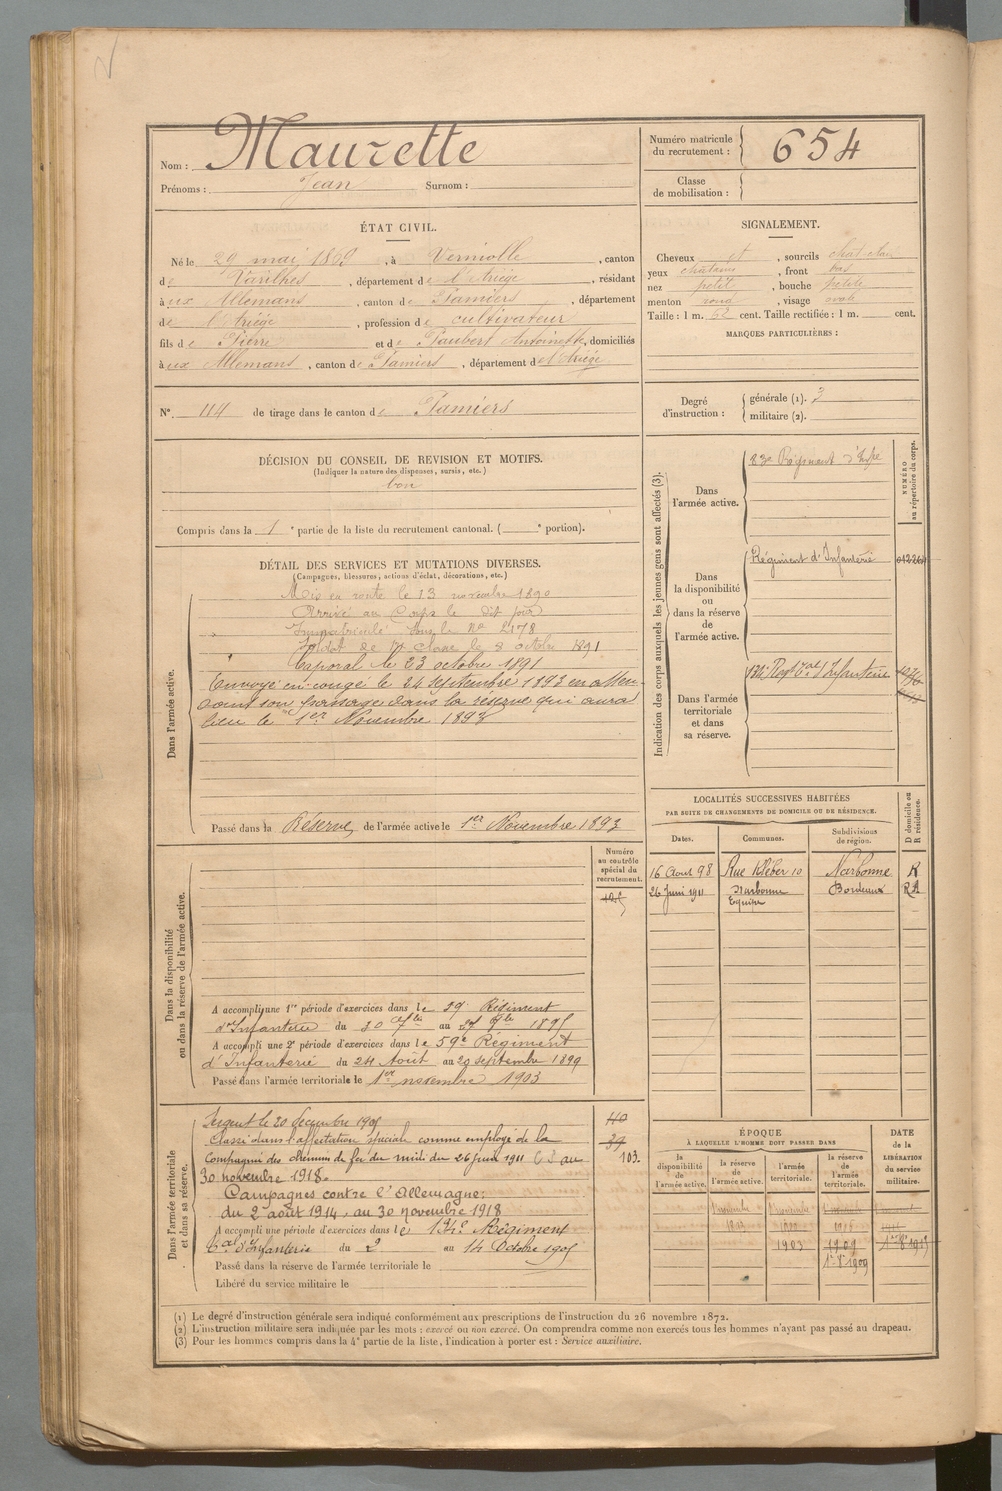 Nom : Maurette
Prénoms : Jean Surnom :
Numéro matricule
du recrutement : 654
Classe
de mobilisation :
ÉTAT CIVIL.
Né le 29 mai 1869, à Verniolle, canton
de Varilhes, département de l'Ariège, résidant
à ux Allemans, canton de Pamiers, département
de l'Ariège, profession de cultivateur
fils de Pierre et de Paubert Antoinette, domiciliés
à ux Allemans, canton de Pamiers, département de l'Ariège
N° 114 de tirage dans le canton de Pamiers
SIGNALEMENT.
Cheveux et, sourcils chat clair
yeux châtains, front bas
nez petit, bouche petite
menton rond, visage ovale
Taille : 1 m. 62 cent. Taille rectifiée : 1 m. cent.
MARQUES PARTICULIÈRES :
Degré
d'instruction :
générale (1). 3
militaire (2).
DÉCISION DU CONSEIL DE REVISION ET MOTIFS.
(Indiquer la nature des dispenses, sursis, etc.)
bon
Compris dans la 1e partie de la liste du recrutement cantonal. ( e portion).
DÉTAIL DES SERVICES ET MUTATIONS DIVERSES.
(Campagnes, blessures, actions d'éclat, décorations, etc.)
Dans l'armée active.
Mis en route le 13 novembre 1890
Arrivé au Corps le dit jour
Immatriculé sous le N° 2178
Soldat de 1e classe le 8 octobre 1891
Caporal le 23 octobre 1891
Envoyé en congé le 24 septembre 1893 en atten-
dant son passage dans la réserve qui aura
lieu le 1er Novembre 1893
Passé dans la Réserve de l'armée active le 1er Novembre 1893
Indication des corps auxquels les jeunes gens sont affectés (3).
NUMÉRO
au répertoire du corps.
Dans
l'armée active.
83e Régiment d'Infie
Dans
la disponibilité
ou
dans la réserve
de
l'armée active.
Régiment d'Infanterie
Dans l'armée
territoriale
et dans
sa réserve.
134e Regt Tal d'Infanterie
LOCALITÉS SUCCESSIVES HABITÉES
PAR SUITE DE CHANGEMENTS DE DOMICILE OU DE RÉSIDENCE.
D domicile ou
R résidence.
Dates. Communes. Subdivisions
de région.
16 Aout 98 Rue Kléber 10 Narbonne R
26 Juin 1911 Narbonne Bordeaux
Equipe
Dans la disponibilité
ou dans la réserve de l'armée active.
Numéro
au contrôle
spécial du
recrutement.
A accompli une 1re période d'exercices dans le 59e Régiment
d'Infanterie du 30 au 1895
A accompli une 2e période d'exercices dans le 59e Régiment
d'Infanterie du 24 Août au 20 septembre 1899
Passé dans l'armée territoriale le 1er novembre 1903
Dans l'armée territoriale
et dans sa réserve.
Sergent le 20 décembre 1905
Classé dans l'affectation spéciale comme employé de la
Compagnie des chemins de fer du midi du 26 juin 1911 au
30 novembre 1918.
Campagnes contre l'Allemagne :
du 2 août 1914, au 30 novembre 1918
103.
A accompli une période d'exercices dans le 134e Régiment
Tal d'Infanterie du 2 au 14 Octobre 1905
Passé dans la réserve de l'armée territoriale le
Libéré du service militaire le
ÉPOQUE
À LAQUELLE L'HOMME DOIT PASSER DANS
DATE
de la
LIBÉRATION
du service
militaire.
la
disponibilité
de
l'armée active.
la réserve
de
l'armée active.
l'armée
territoriale.
la réserve
de
l'armée
territoriale.
1893
1903 1909
1909
(1) Le degré d'instruction générale sera indiqué conformément aux prescriptions de l'instruction du 26 novembre 1872.
(2) L'instruction militaire sera indiquée par les mots : exercé ou non exercé. On comprendra comme non exercés tous les hommes n'ayant pas passé au drapeau.
(3) Pour les hommes compris dans la 4e partie de la liste, l'indication à porter est : Service auxiliaire.